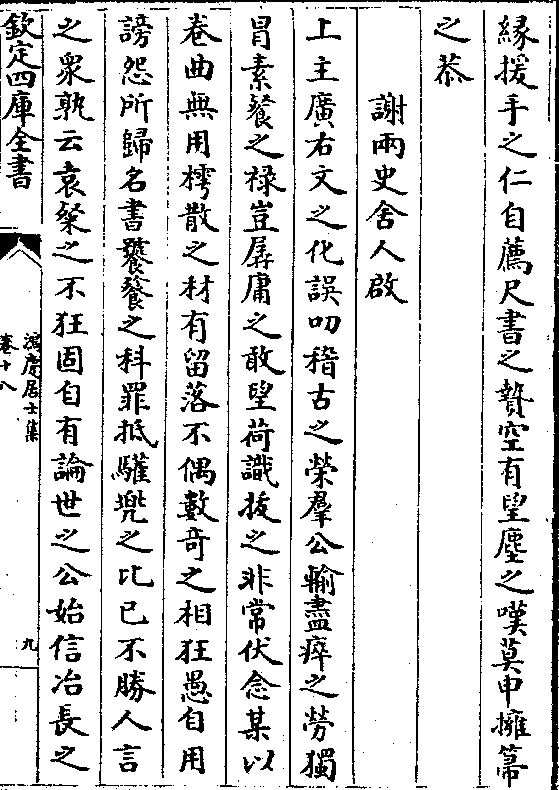 緣援手之仁自薦尺書之贄空有望塵之嘆莫申擁篲
之恭
謝兩史舍人啟
上主廣右文之化誤叨稽古之榮羣公輸盡瘁之勞獨
冒素餐之禄豈孱庸之敢望荷識拔之非常伏念某以
卷曲無用樗散之材有留落不偶數奇之相狂愚自用
謗怨所歸名書饕餮之科罪抵驩兠之比已不勝人言
之衆孰云哀粲之不狂固自有論世之公始信冶長之
欽定四庫全書
鴻慶居士集
卷十八
九